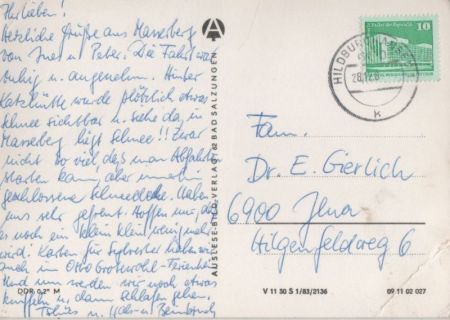 Ihr Lieben!
Herzliche Grüße aus Masserberg
von Ines u. Peter. Die Fahrt war
ruhig u. angenehm. Hinter
Katzhütte wurde plötzlich etwas
Schnee sichtbar u. siehe da, in
Masserberg liegt Schnee!! Zwar
nicht so viel, daß man Abfahrts
starten kann, aber
geschlossene Schneedecke. Haben
uns sehr gefreut. Hoffen nur, daß
es noch ein klein klein wenig mehr
wird. Karten für Sylvester haben wir
auch im Otto Grotewohl-Ferienheim
Und nun werden wir noch etwas
u. dann schlafen gehen.
Tschüs u.
AUSLESE-BILD-VERLAG 62 BAD SALZUNGEN
DDR 0,2* M
HILDBURGHAUSEN
28.12.8
k
10
Fam.
Dr. E. Gierlich
6900 Jena
Hilgenfeldweg 6
V 11 50 S 1/83/2136
09 11 02 027